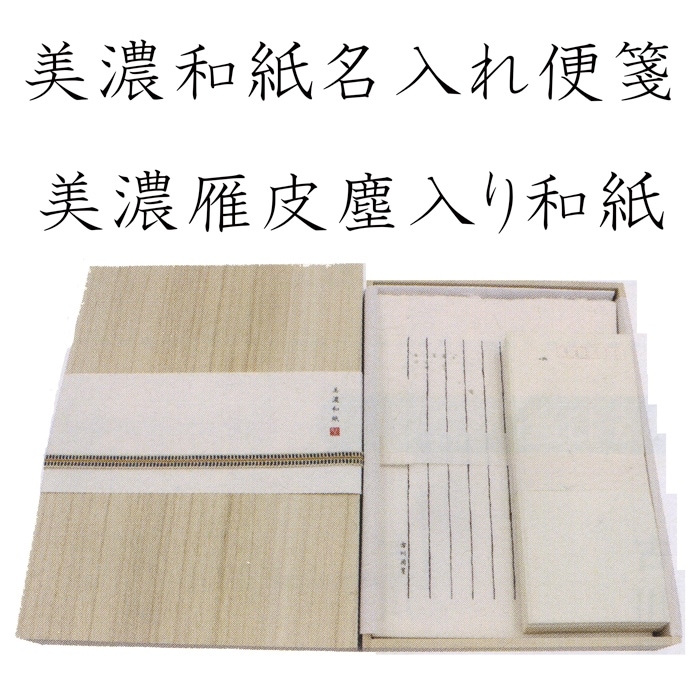 美濃和紙名入れ便箋
美濃雁皮塵入り和紙
美濃和紙